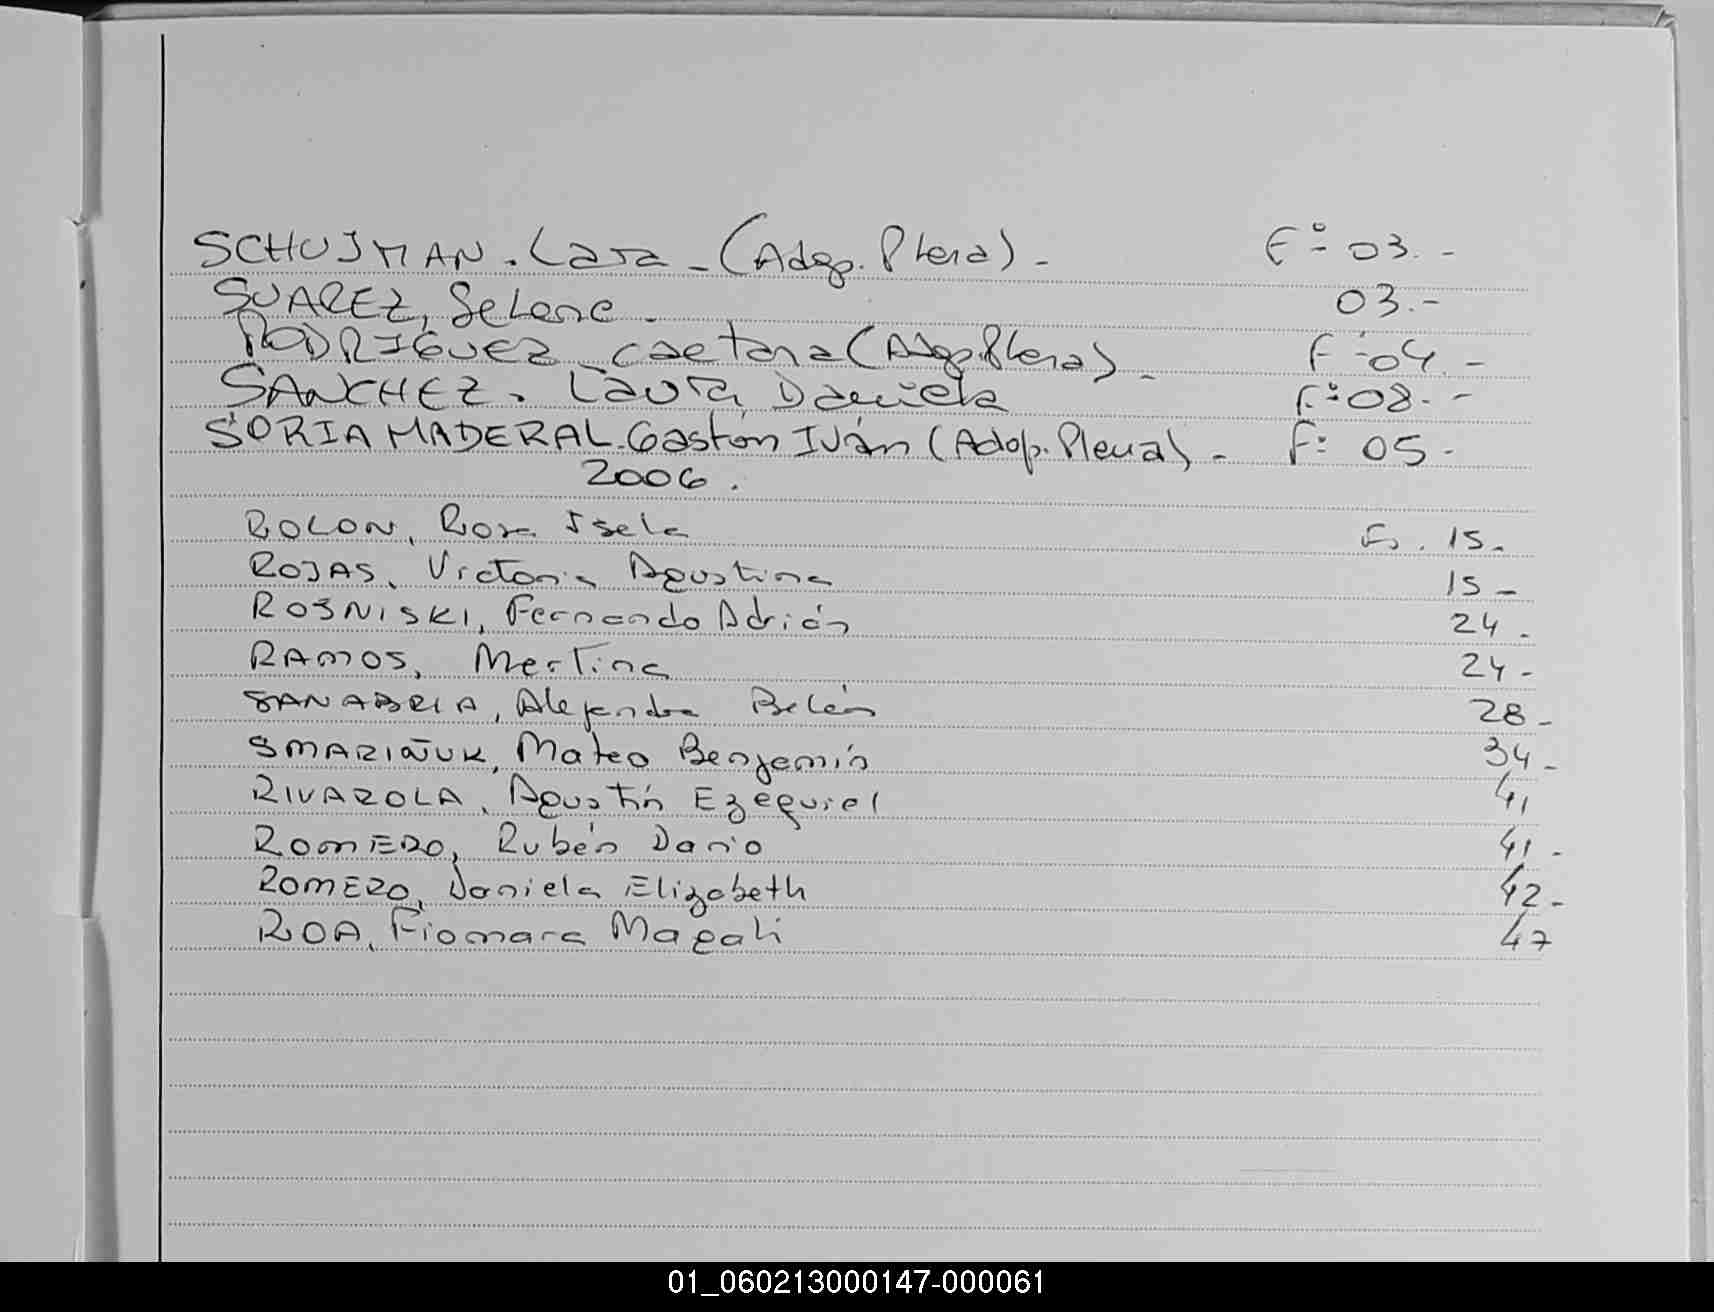 SCHUJMAN. Lara - (Adop. Plena) - Fº 03. -
SUAREZ, Selene. 03. -
RODRIGUEZ Caetana (Adop. Plena) - Fº 04. -
SANCHEZ. Laura Daniela Fº 08. -
SORIA MADERAL. Gastón Iván (Adop. Plena) - Fº 05 -
2006.
ROLON, Rosa Isela Fº. 15 -
ROJAS, Victoria Agustina 15 -
ROSNISKI, Fernando Adrián 24 -
RAMOS, Martina 24 -
SANABRIA, Alejandra Belén 28 -
SMARIÑUK, Mateo Benjamín 34 -
RIVAROLA, Agustín Ezequiel 41
ROMERO, Rubén Dario 41 -
ROMERO, Daniela Elizabeth 42 -
ROA, Fiomara Magali 47
01_060213000147-000061